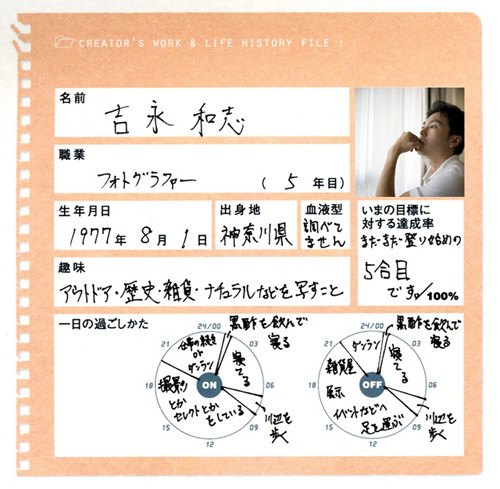 CREATOR'S WORK & LIFE HISTORY FILE :
名前
吉永 和志
職業
フォトグラファー ( 5 年目)
生年月日
1977年 8月 1日
出身地
神奈川県
血液型
調べて
ません
いまの目標に
対する達成率
まだまだ登り始めの
5合目
です。/100%
趣味
アウトドア・歴史・雑貨・ナチュラルなどを写すこと
一日の過ごしかた
24/00
03
06
09
12
15
18
21
ON
黒酢を飲んで
寝る
寝てる
川辺を
歩く
撮影
とか
セレクトとか
をしている
仕事の続き
or
ダンラン
24/00
03
06
09
12
15
18
21
OFF
黒酢を飲んで
寝る
寝てる
川辺を
歩く
雑貨屋
展示
イベントなどへ
足を運ぶ
ダンラン